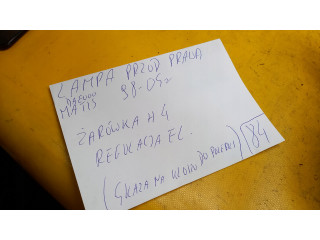 LAMPA PRZÓD PRAWA
DAEWOO
MATIS 98-05r
ŻARÓWKA H4
REGULACJA EL.
(SKAZA NA KLOSZU DO POLERKI) 84